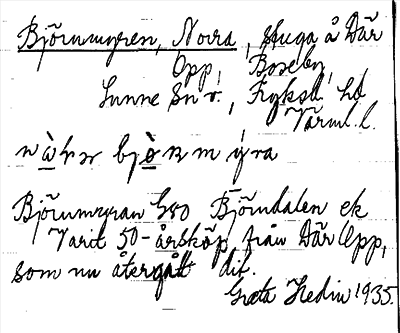 Björnmyren, Norra, stuga å Där
Opp, Boseby,
Sunne Sn v., Fryksd. hd
Värml. l.
nòrr bjò̱rnmýra
Björnmyran GSO Björndalen ek
Varit 50-årsköp från Där Opp,
som nu återgått dit.
Greta Hedin 1935.